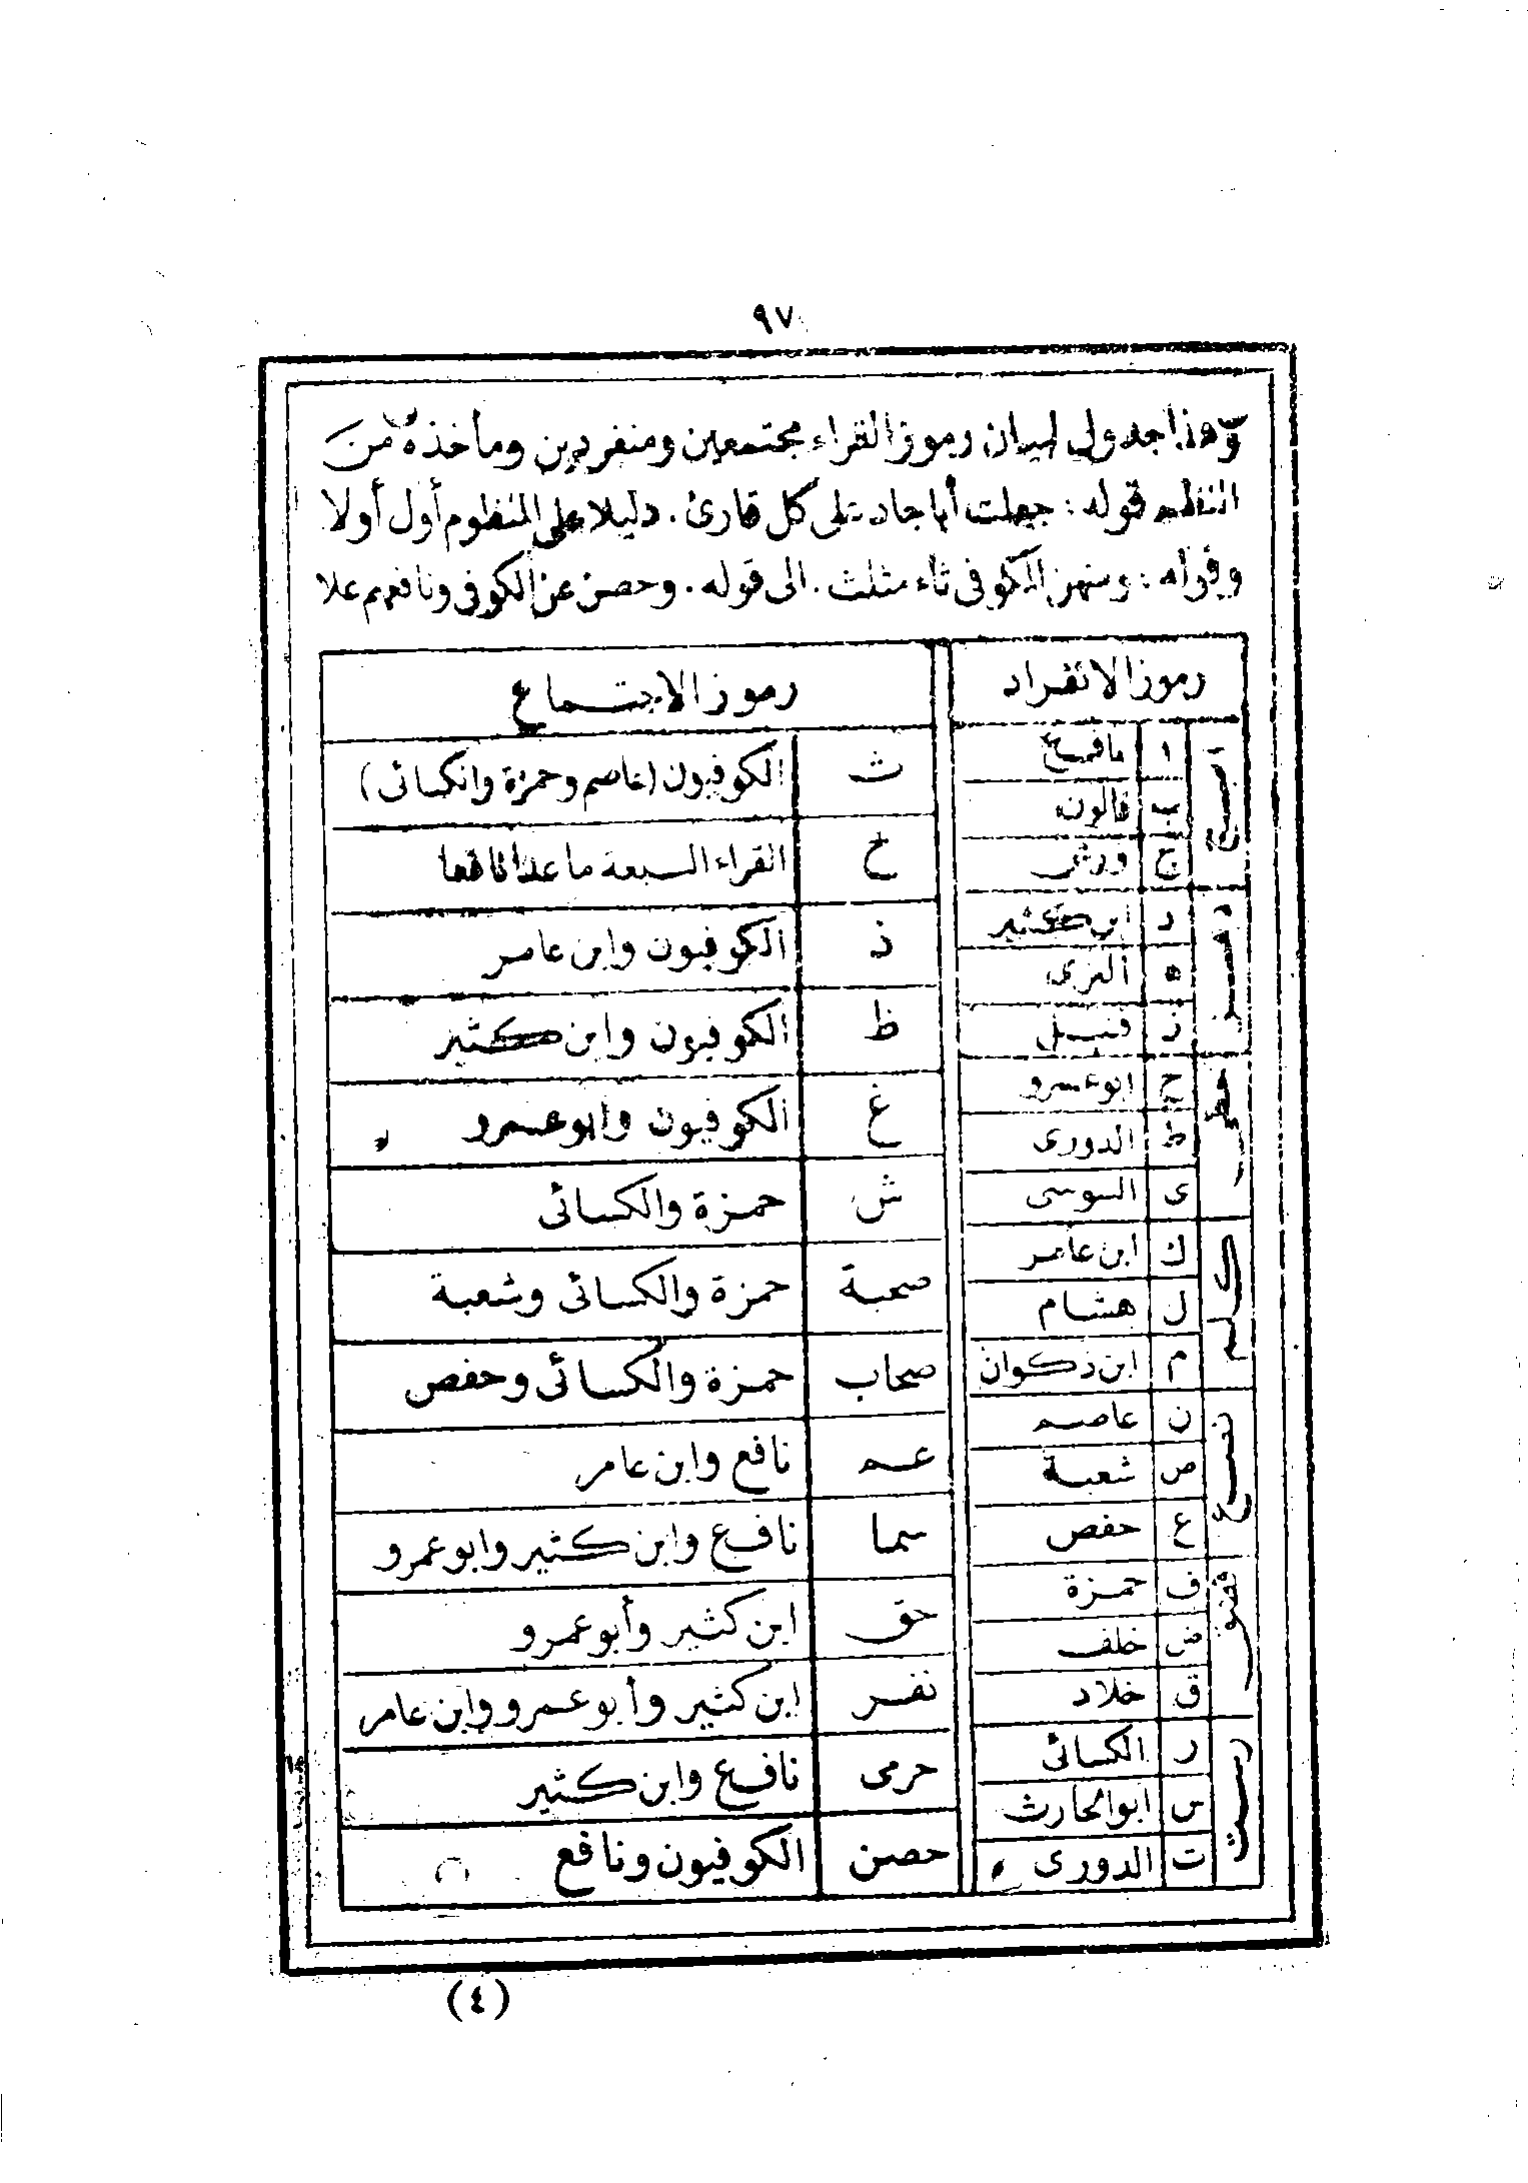 ٩٧
وهذا جدول لبيان رموز القراء مجتمعين ومنفردين ومأخذه من
النظم قوله : جعلت أبا جاد على كل قارئ . دليلا على المنظوم أول أولا
وقوله : ومنهن للكوفى ثاء مثلث . الى قوله . وحصن عن الكوفى ونافعهم علا
رموز الانفراد
ابج
ا نافع
ب قالون
ج ورش
دهز
د ابن كثير
ه البزى
ز قنبل
حطى
ح ابوعمرو
ط الدورى
ى السوسى
كلم
ك ابن عامر
ل هشام
م ابن ذكوان
نصع
ن عاصم
ص شعبة
ع حفص
فضق
ف حمزة
ض خلف
ق خلاد
رست
ر الكسائى
س ابوالحارث
ت الدورى
رموز الاجتماع
ث الكوفيون (عاصم وحمزة والكسائى)
خ القراء السبعة ما عدا نافعا
ذ الكوفيون وابن عامر
ظ الكوفيون وابن كثير
غ الكوفيون وابوعمرو
ش حمزة والكسائى
صحبة حمزة والكسائى وشعبة
صحاب حمزة والكسائى وحفص
عم نافع وابن عامر
سما نافع وابن كثير وابوعمرو
حق ابن كثير وأبوعمرو
نفر ابن كثير وأبوعمرو وابن عامر
حرمى نافع وابن كثير
حصن الكوفيون ونافع
(٤)